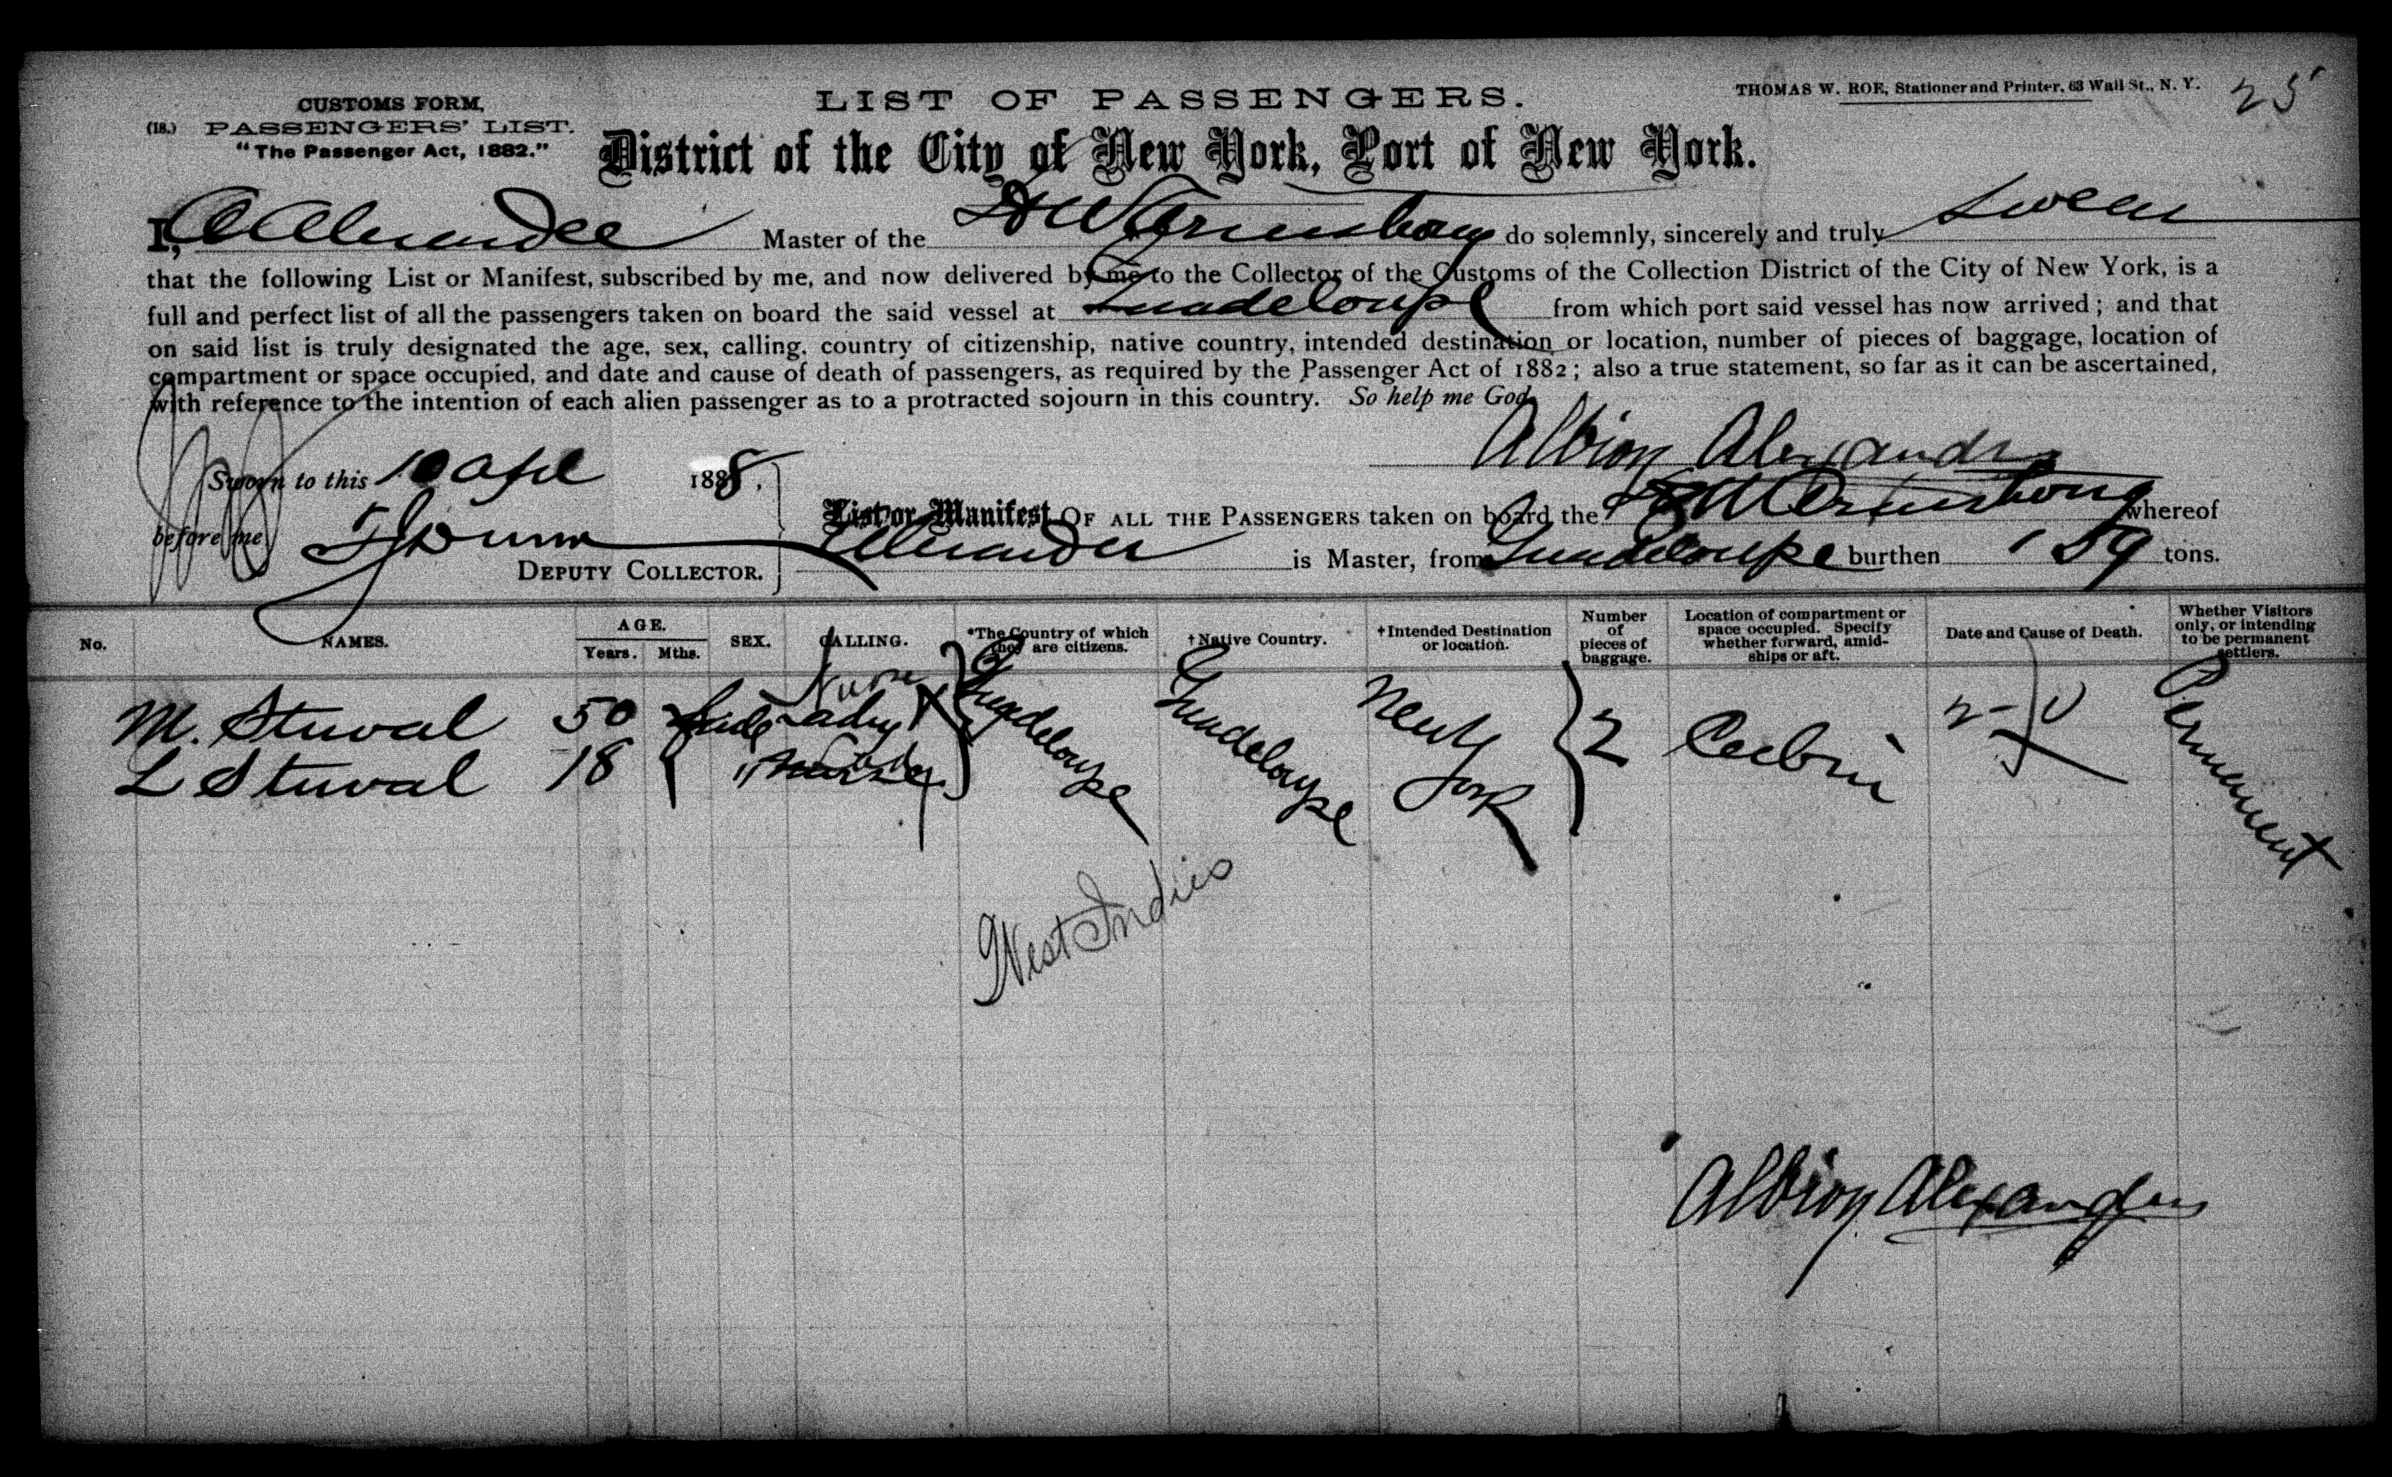 LIST OF PASSENGERS.
THOMAS W. ROE, Stationer and Printer, 63 Wall St., N. Y.
25
CUSTOMS FORM,
(18.) PASSENGERS' LIST.
"The Passenger Act, 1882."
District of the City of New York, Port of New York.
I, Master of the do solemnly, sincerely and truly swear
that the following List or Manifest, subscribed by me, and now delivered by me to the Collector of the Customs of the Collection District of the City of New York, is a
full and perfect list of all the passengers taken on board the said vessel at Guadeloupe from which port said vessel has now arrived; and that
on said list is truly designated the age, sex, calling, country of citizenship, native country, intended destination or location, number of pieces of baggage, location of
compartment or space occupied, and date and cause of death of passengers, as required by the Passenger Act of 1882; also a true statement, so far as it can be ascertained,
with reference to the intention of each alien passenger as to a protracted sojourn in this country. So help me God.
Albion Alexander
Sworn to this 10 Apl 1888,
before me
DEPUTY COLLECTOR.
List or Manifest OF ALL THE PASSENGERS taken on board the whereof
Alexander is Master, from Guadeloupe burthen 159 tons.
No. NAMES. AGE. Years. Mths. SEX. CALLING. *The Country of which they are citizens. †Native Country. †Intended Destination or location. Number of pieces of baggage. Location of compartment or space occupied. Specify whether forward, amidships or aft. Date and Cause of Death. Whether Visitors only, or intending to be permanent settlers.
M. Stuval 50 Lady Nurse Guadeloupe Guadeloupe New York 2 Cabin Permanent
L Stuval 18 " Nurse Lady
West Indies
Albion Alexander